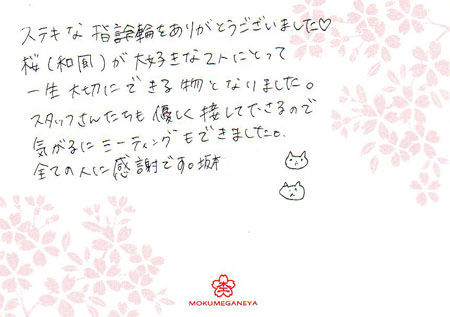 ステキな指輪をありがとうございました♡
桜(和風)が大好きな2人にとって
一生大切にできる物となりました。
スタッフさんたちも優しく接して下さるので
気がるにミーティングもできました。
全ての人に感謝です。坂本
MOKUMEGANEYA